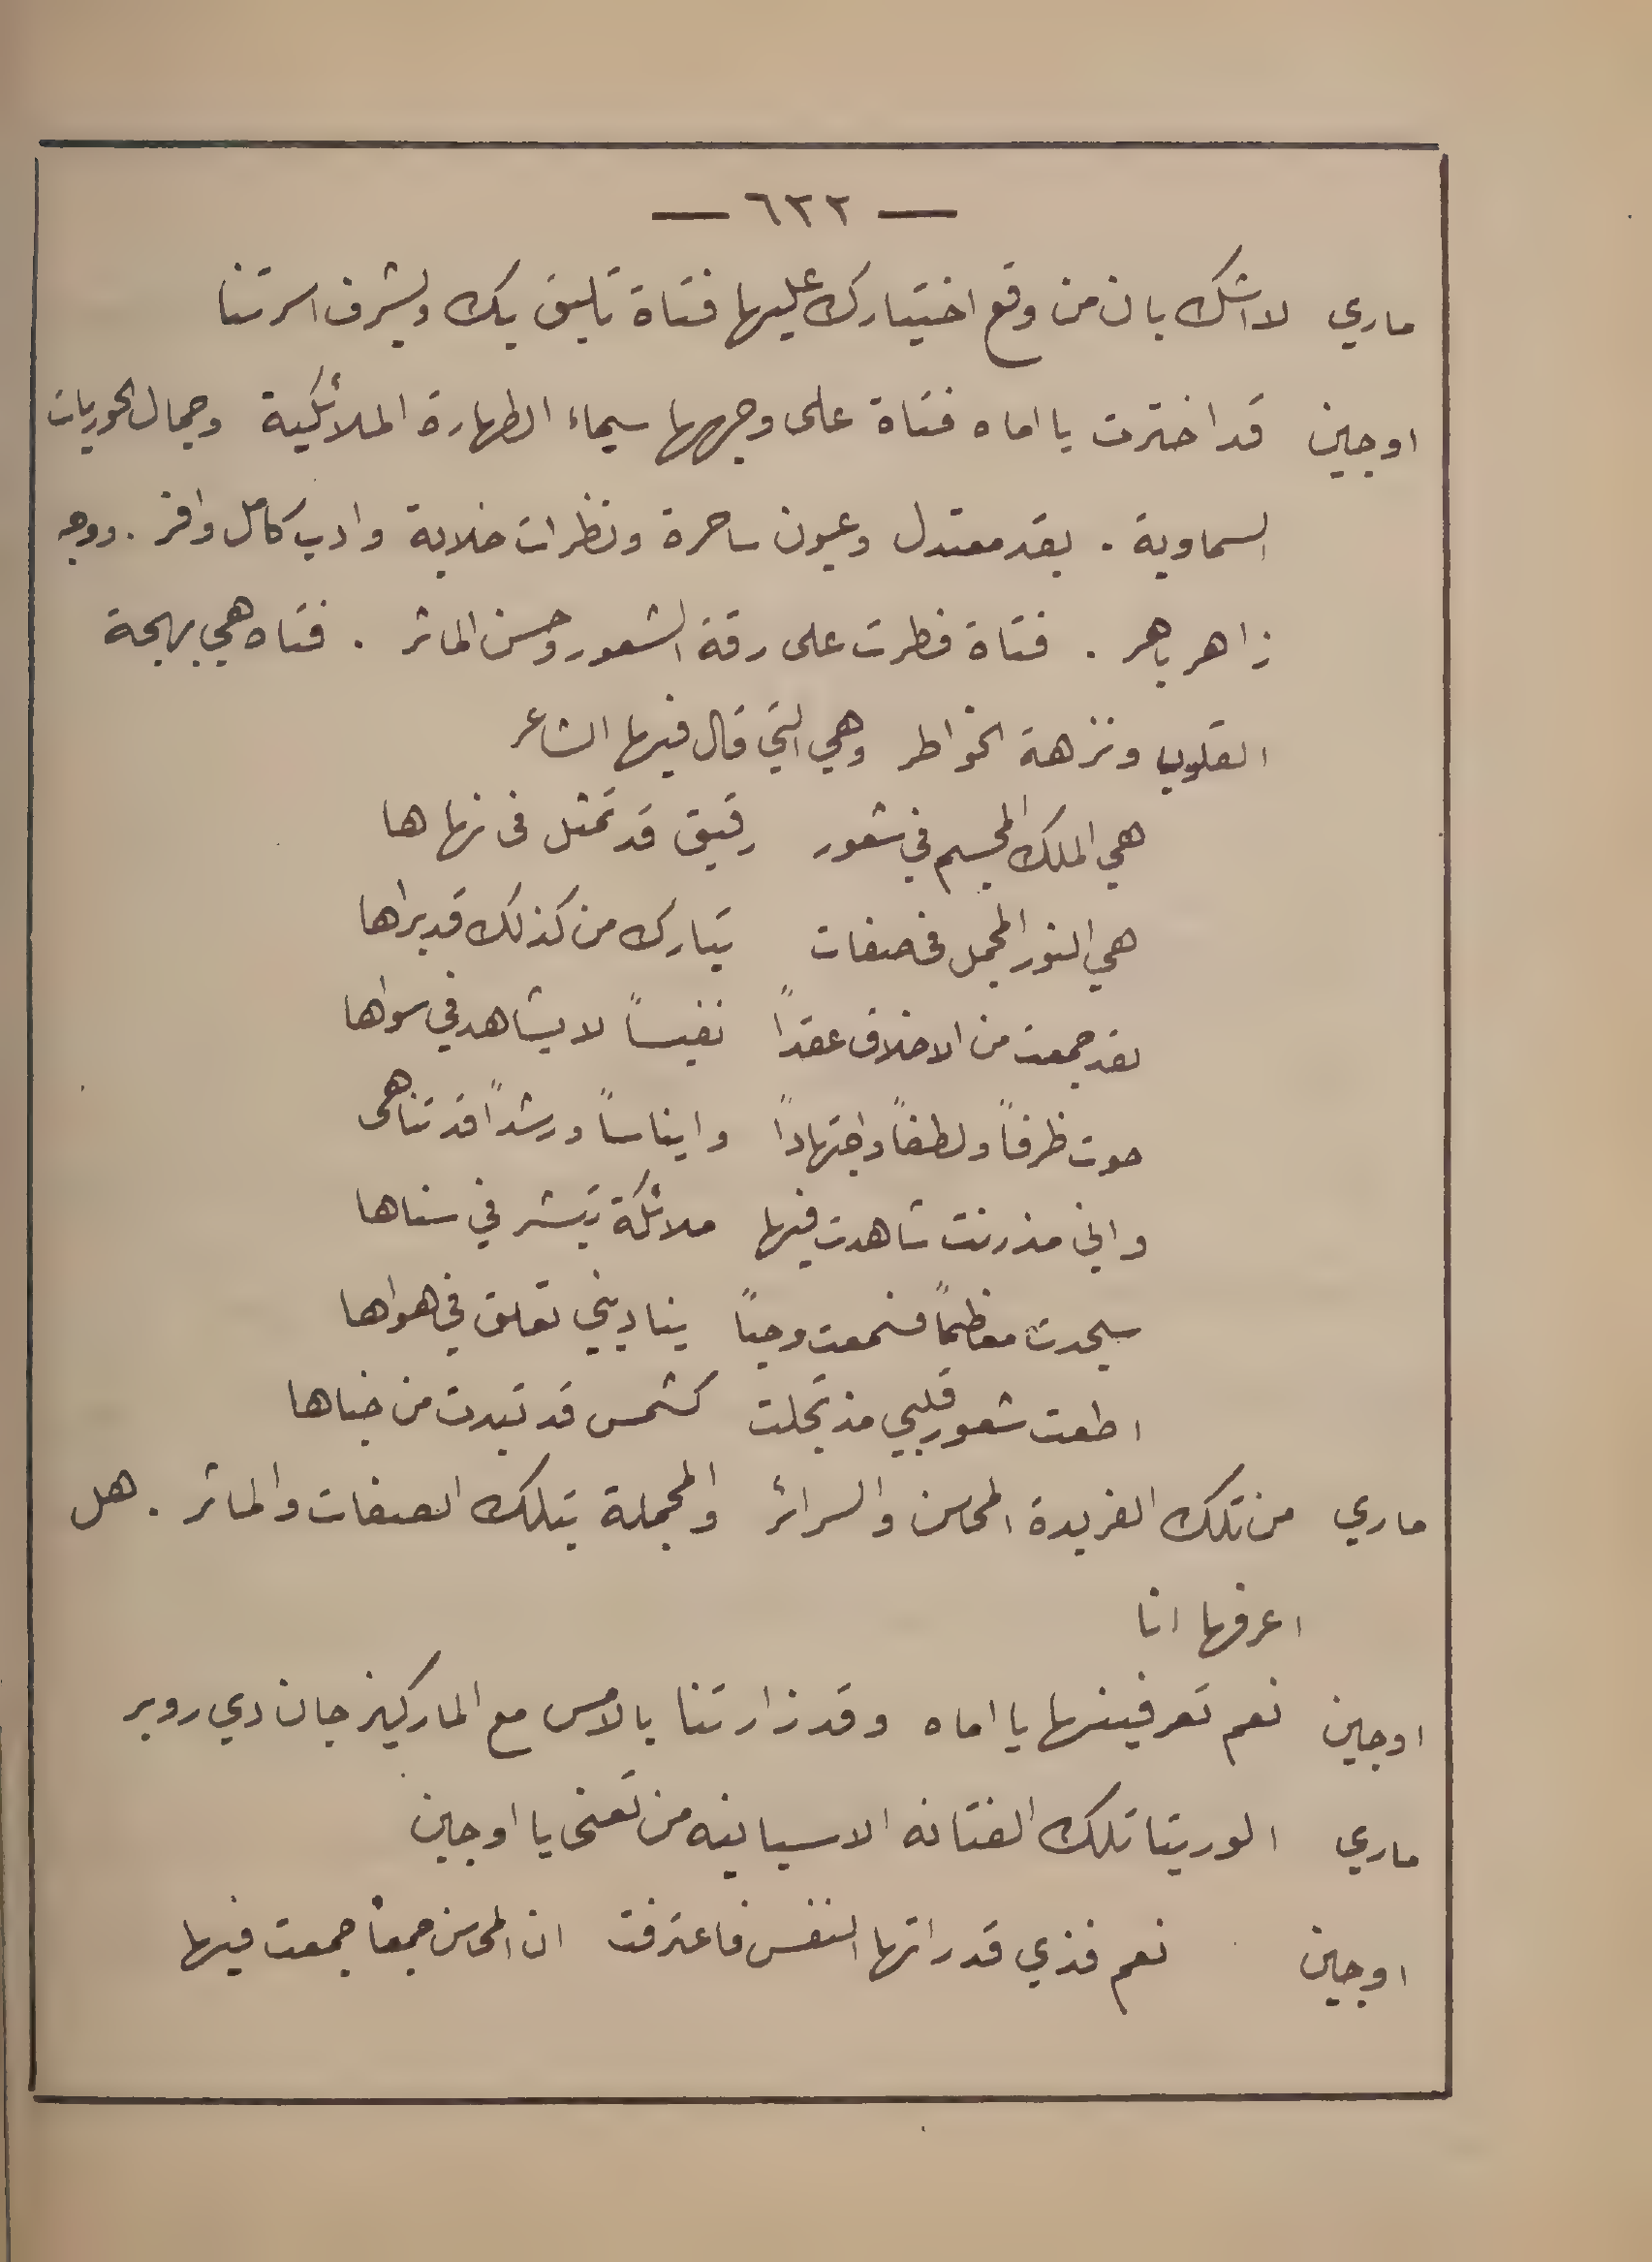 — ٦٢٢ —
ماري لا اشك بان من وقع اختيارك عليها فتاة تليق بك وبشرف اسرتنا
اوجين قد اخترت يا اماه فتاة على وجهها سيماء الطهارة الملائكية وجمال الحوريات
السماوية . بقد معتدل وعيون ساحرة ونظرات خلابة وادب كامل وافر . ووجه
زاهر باهر . فتاة فطرت على رقة الشعور وحسن الماثر . فتاه هي بهجة
القلوب ونزهة الخواطر وهي التي قال فيها الشاعر
هي الملك المجسم في شعور رقيق قد تمثل فى نهاها
هي النور المجمل فى صفات تبارك من كذلك قد براها
لقد جمعت من الاخلاق عقداً نفيساً لا يشاهد في سواها
حوت ظرفاً ولطفاً واجتهاداً وايناساً ورشداً قد تناهى
واني مذ رنت شاهدت فيها ملائكة تبشر في سناها
سجدت معظماً فسمعت وحياً يناديني تعلق في هواها
اطعت شعور قلبي مذ تجلت كشمس قد تبدت من خباها
ماري من تلك الفريدة المحاسن والسرائر والمجملة بتلك الصفات والماثر . هل
اعرفها انا
اوجين نعم تعرفينها يا اماه وقد زارتنا بالامس مع الماركيز جان دي روبر
ماري الوريتا تلك الفتانه الاسبانيه من تعنى يا اوجين
اوجين نعم فذي قد راتها النفس فاعترفت ان المحاسن جمعاً جمعت فيها